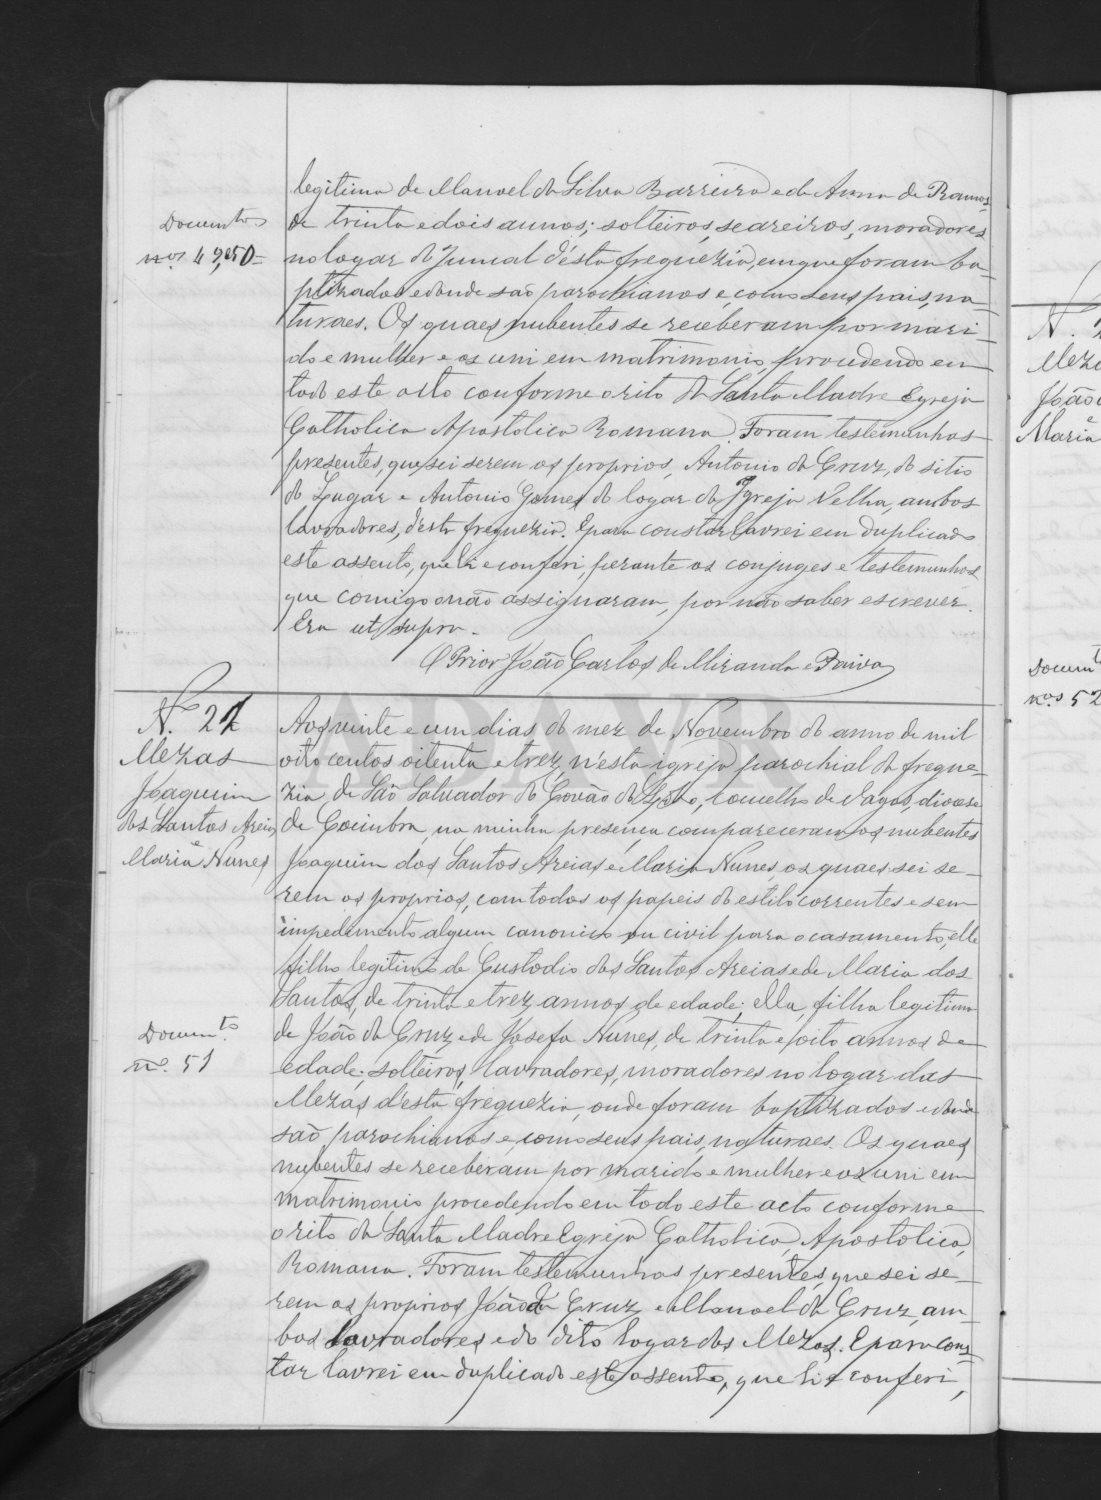 legitima de Manoel da Silva Barreira e de Anna de Ramos
de trinta e dois annos; solteiros, seareiros, moradores
Documentos
nos. 49, e 50 =
no logar do Juncal d'esta freguezia, em que foram ba-
ptizados e donde são parochianos e, como seus pais, na-
turaes. Os quaes nubentes se receberam por mari-
do e mulher e os uni em matrimonio, procedendo em
todo este acto conforme o rito da Santa Madre Egreja
Catholica Apostolica Romana. Foram testemunhas
presentes, que sei serem os proprios, Antonio da Cruz, do sitio
do Lugar e Antonio Gomes do logar da Igreja Velha, ambos
lavradores, d'esta freguezia. E para constar lavrei em duplicado
este assento, que li e conferi, perante os conjuges e testemunhas
que comigo não assignaram, por não saber escrever.
Era ut supra.
O Prior João Carlos de Miranda e Paiva
N.º 21
Mezas
Joaquim
dos Santos Areias
e
Maria Nunes
Aos vinte e um dias do mez de Novembro do anno de mil
oito centos oitenta e trez, n'esta igreja parochial da fregue-
zia de São Salvador do Covão do Lobo, concelho de Vagos, diocese
de Coimbra, na minha presença compareceram os nubentes
Joaquim dos Santos Areias e Maria Nunes, os quaes sei se-
rem os proprios, com todos os papeis do estilo correntes e sem
impedimento algum canonico ou civil para o casamento, elle
filho legitimo de Custodio dos Santos Areias e de Maria dos
Santos, de trinta e trez annos de edade; ella, filha legitima
de João da Cruz e de Josefa Nunes, de trinta e oito annos de
Documto.
nº. 51
edade; solteiros, lavradores, moradores no logar das
Mezas d'esta freguezia, onde foram baptizados e donde
são parochianos e, como seus pais, naturaes. Os quaes
nubentes se receberam por marido e mulher e os uni em
matrimonio procedendo em todo este acto conforme
o rito da Santa Madre Egreja Catholica, Apostolica,
Romana. Foram testemunhas presentes, que sei se-
rem os proprios João da Cruz e Manoel da Cruz, am-
bos lavradores e do dito logar das Mezas. E para cons-
tar lavrei em duplicado este assento, que li e conferi,
ADAVR
N. 2
Meza
João
e
Maria
Documt
nos 52